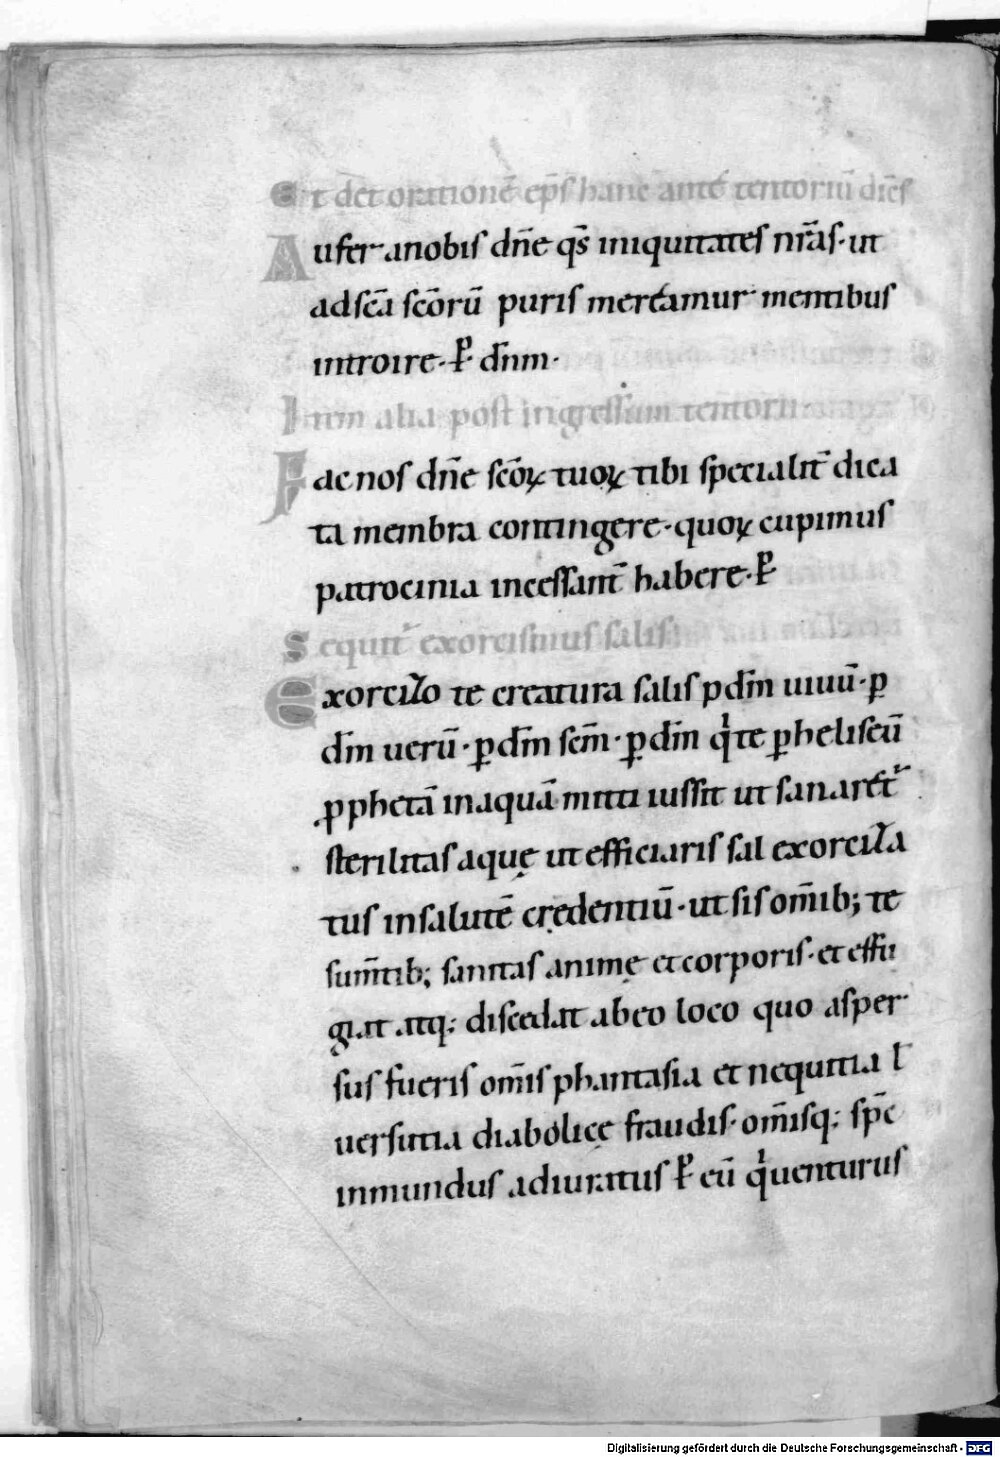 Et det orationē ep̄s hanc ante tentoriū dicēs
Aufer anobis dn̄e qs̄ iniquitates nr̄as· ut
adsc̄a sc̄orū puris mereamur mentibus
introire· P̲ dn̄m·
Item alia post ingressum tentorii
Fac nos dn̄e sc̄oꝝ tuoꝝ tibi specialit̄ dica
ta membra contingere· quoꝝ cupimus
patrocinia incessant̄ habere· P̲
Sequit̄ exorcismus salis
Exorcizo te creatura salis ꝑ dm̄ uiuū· ꝑ
dm̄ uerū· ꝑ dm̄ sc̄m· ꝑ dm̄ qͥ te ꝑ heliseū
ꝓphetā inaquā mitti iussit ut sanaret᷑
sterilitas aquę ut efficiaris sal exorciza
tus insalutē credentiū· ut sis om̄ib; te
sum̄tib; sanitas animę et corporis· et effu
giat atq; discedat abeo loco quo asper
sus fueris om̄is phantasia et nequitia ł
uersutia diabolicę fraudis· om̄isq; sp̄c
inmundus adiuratus P̲ eū qͥ uenturus
Digitalisierung gefördert durch die Deutsche Forschungsgemeinschaft - DFG